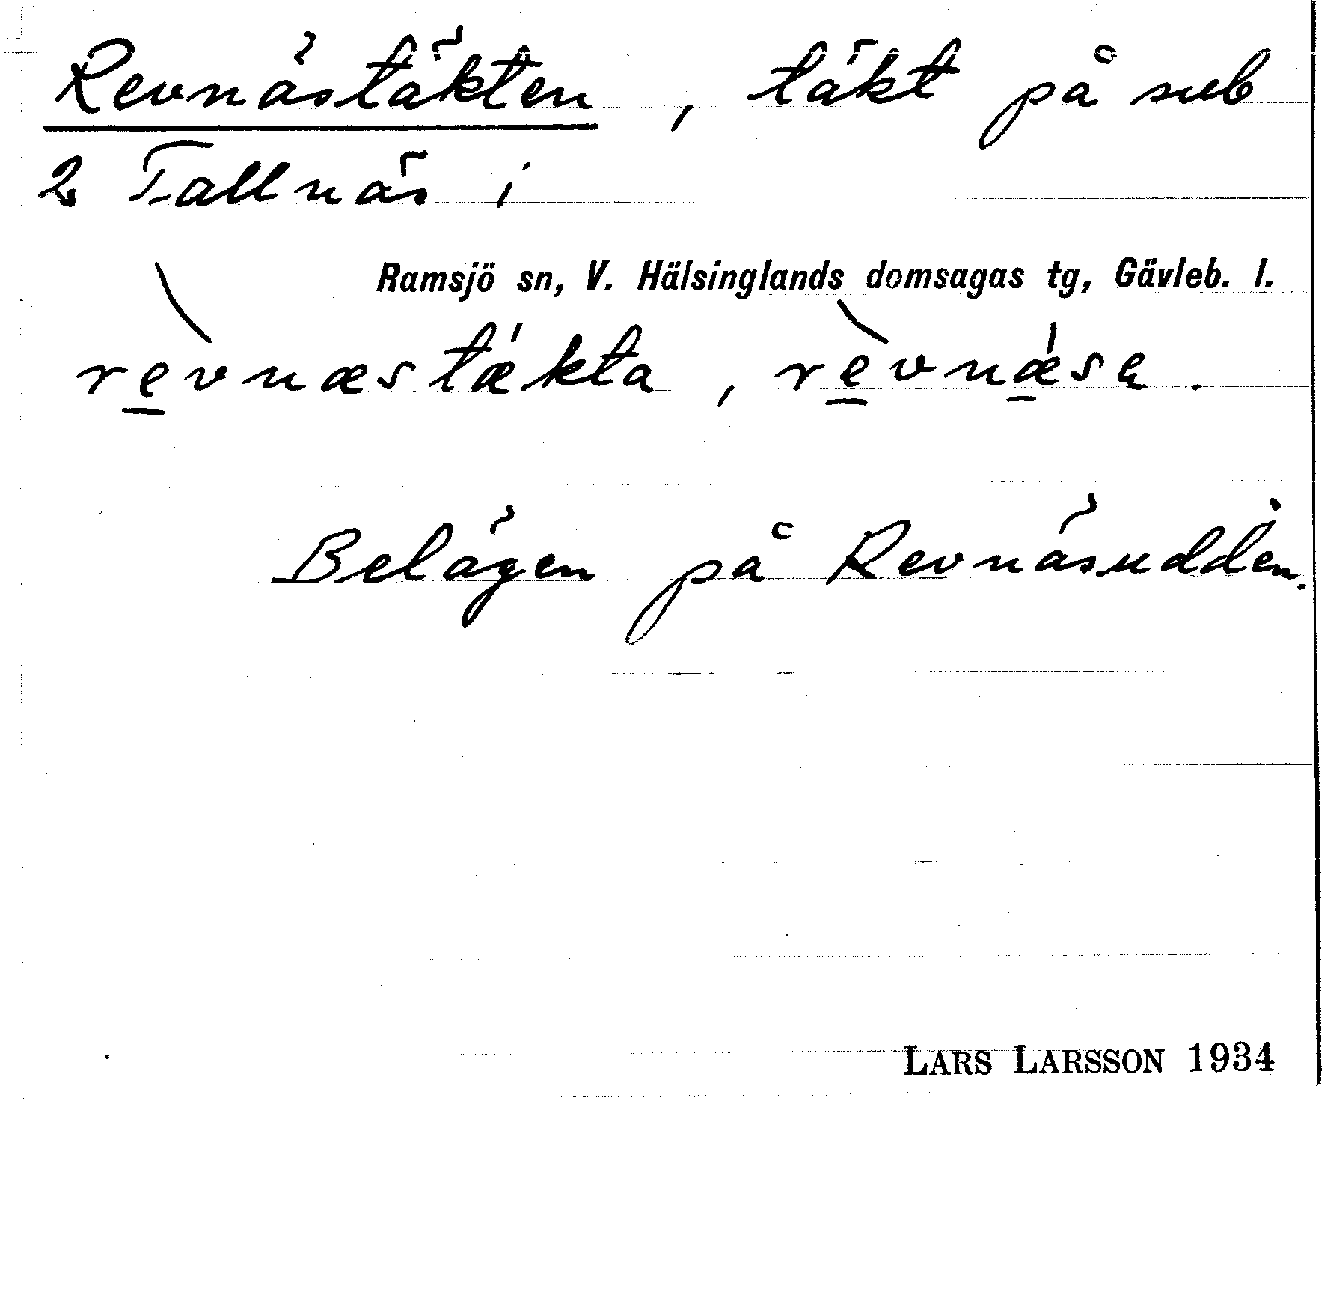 Revnästäkten, täkt på sub
2 Tallnäs i
Ramsjö sn, V. Hälsinglands domsagas tg, Gävleb. l.
rè̲vnæstǽkta, rè̲vnǽ̲sa.
Belägen på Revnäsudden.
LARS LARSSON 1934